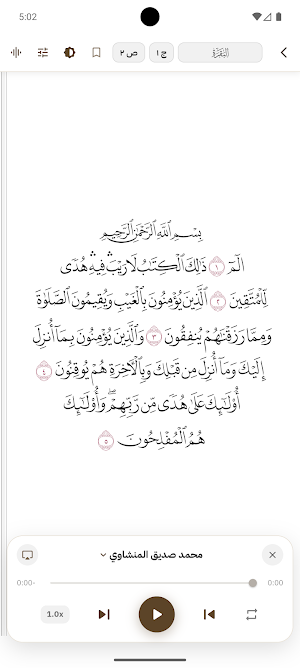 5:02
ص ٢
ج ١
البَقَرَة
بِسْمِ ٱللَّهِ ٱلرَّحْمَٰنِ ٱلرَّحِيمِ
الٓمٓ ١ ذَٰلِكَ ٱلْكِتَٰبُ لَا رَيْبَ ۛ فِيهِ ۛ هُدًى
لِّلْمُتَّقِينَ ٢ ٱلَّذِينَ يُؤْمِنُونَ بِٱلْغَيْبِ وَيُقِيمُونَ ٱلصَّلَوٰةَ
وَمِمَّا رَزَقْنَٰهُمْ يُنفِقُونَ ٣ وَٱلَّذِينَ يُؤْمِنُونَ بِمَآ أُنزِلَ
إِلَيْكَ وَمَآ أُنزِلَ مِن قَبْلِكَ وَبِٱلْءَاخِرَةِ هُمْ يُوقِنُونَ ٤
أُو۟لَٰٓئِكَ عَلَىٰ هُدًى مِّن رَّبِّهِمْ ۖ وَأُو۟لَٰٓئِكَ
هُمُ ٱلْمُفْلِحُونَ ٥
محمد صديق المنشاوي
0:00-
0:00
1.0x